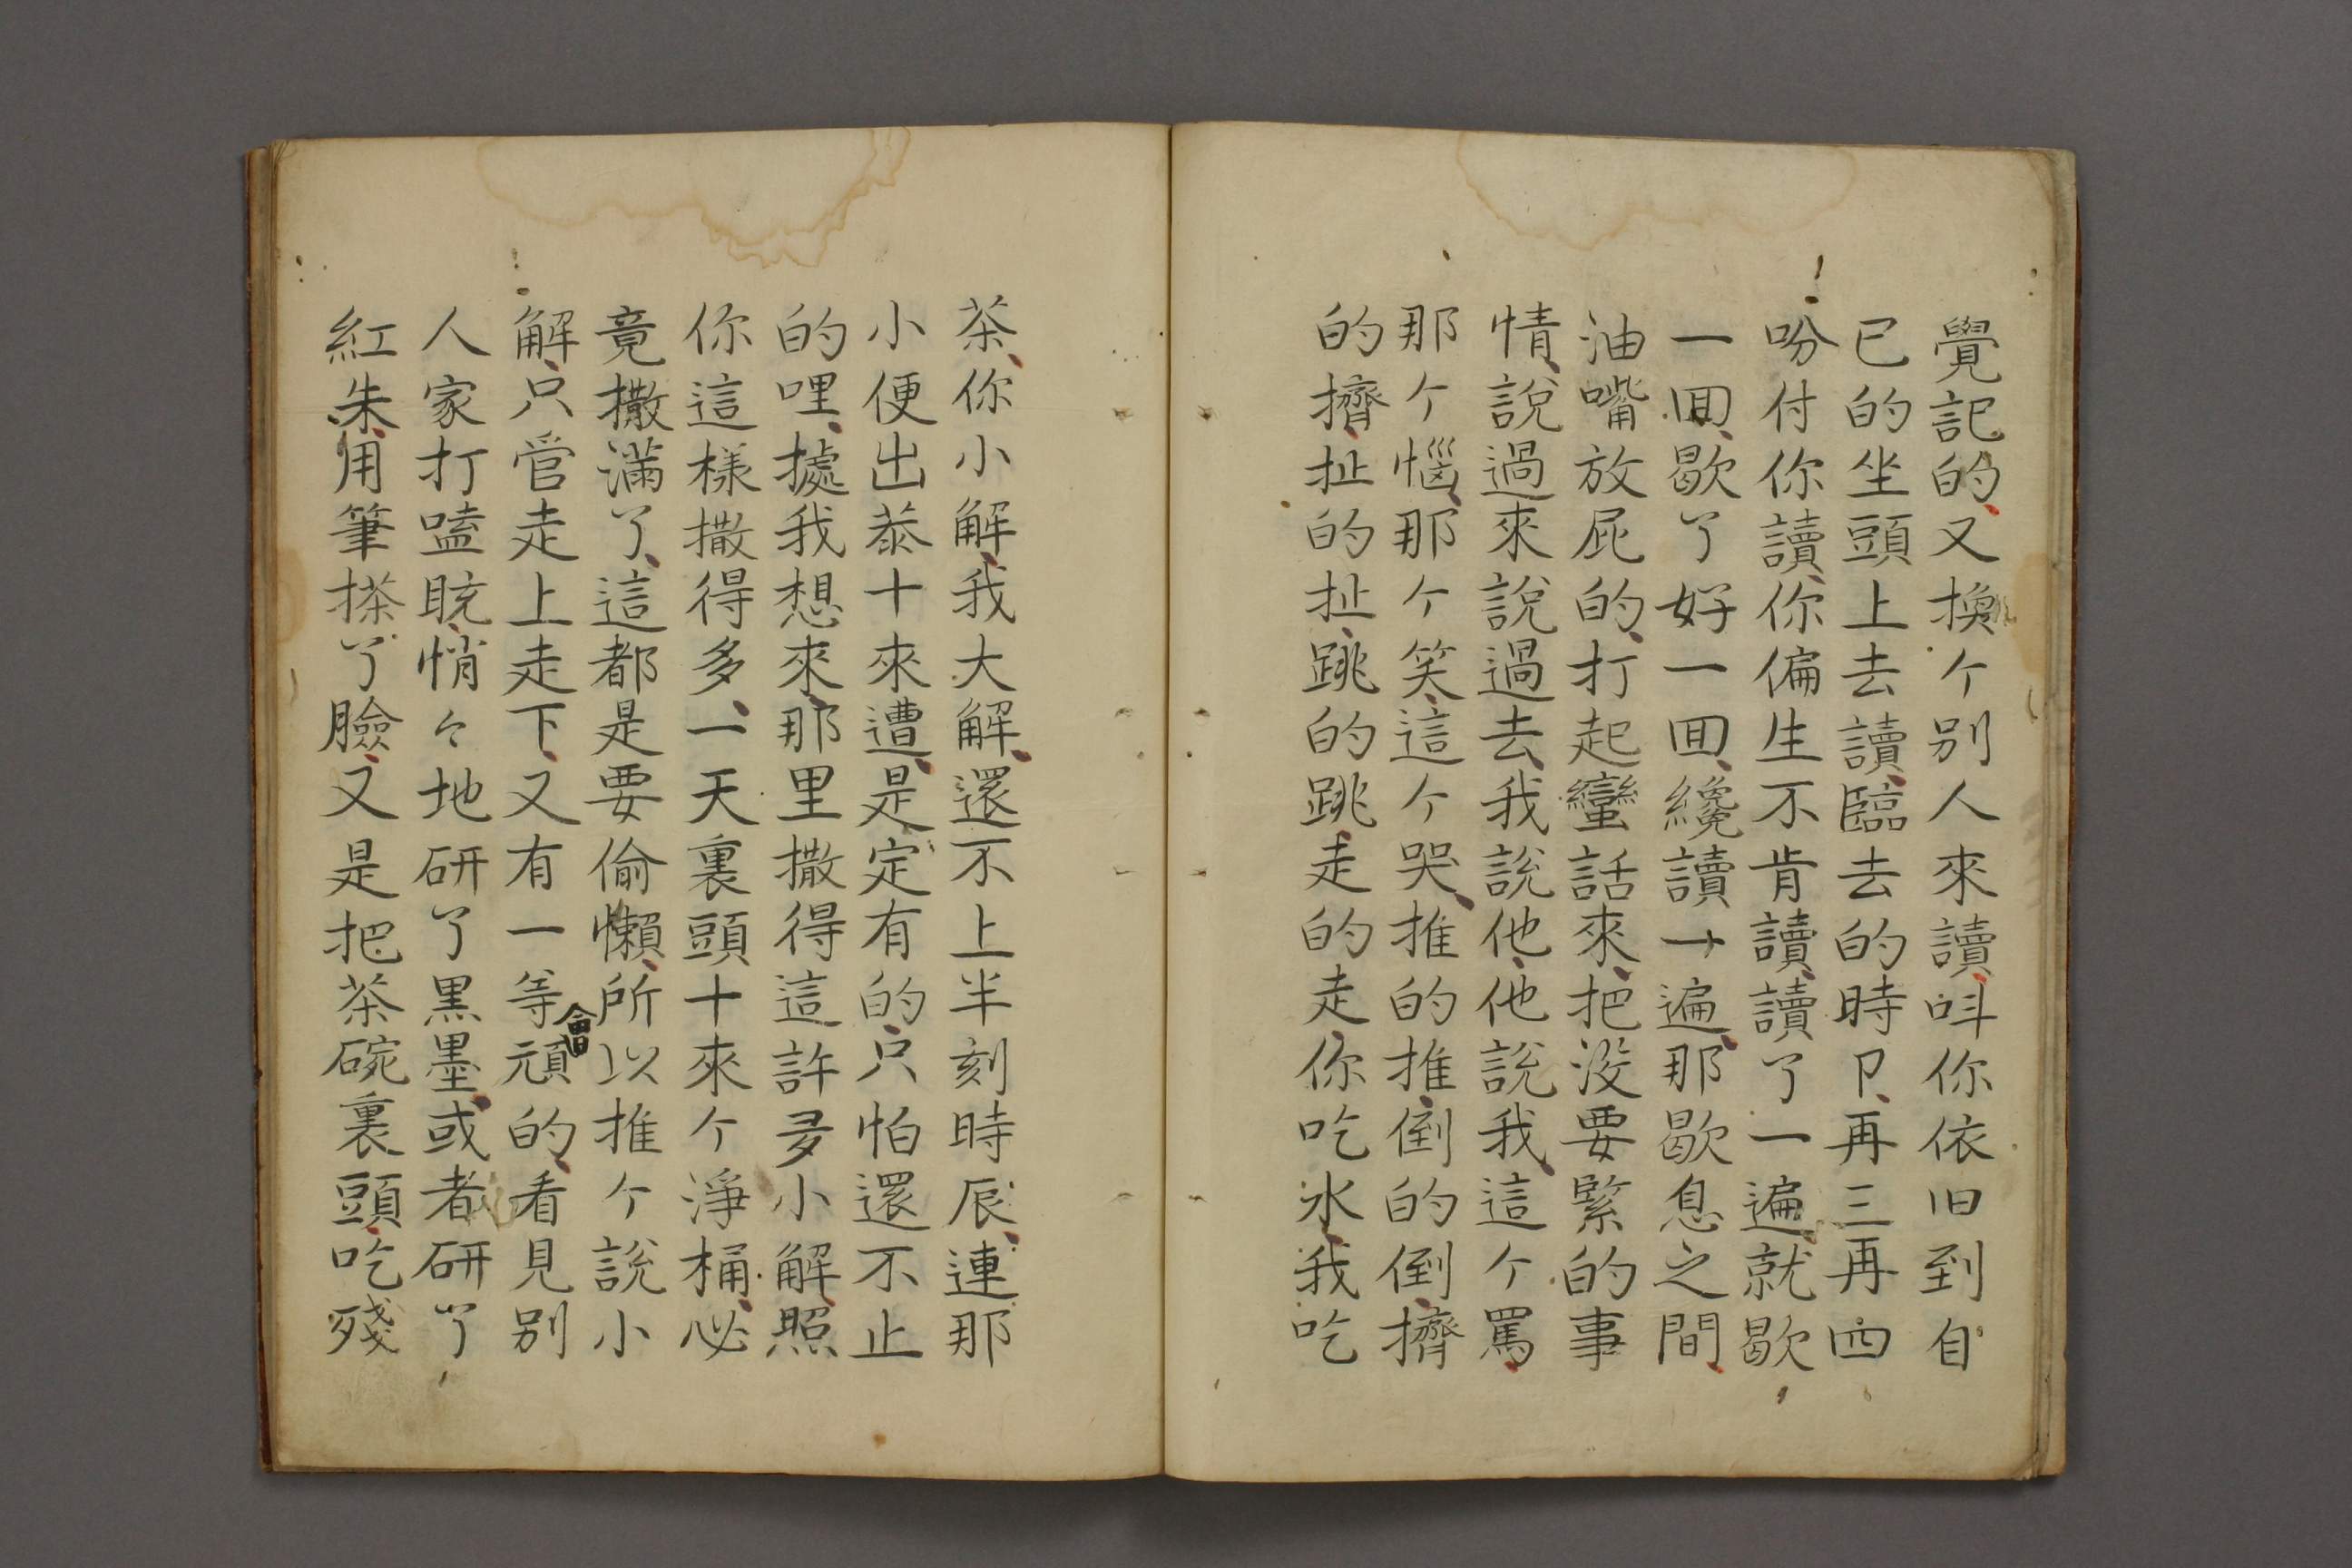 覺記的、又換个別人來讀、呌你依旧到自
已的坐頭上去讀、臨去的時卩、再三再四
吩付你讀、你偏生不肯讀、讀了一遍、就歇
一囬、歇了好一囬、纔讀一遍、那歇息之間、
油嘴放屁的、打起蠻話來、把没要緊的事
情、說過來說過去、我說他、他說我、這个罵、
那个惱、那个笑、這个哭、推的推、倒的倒、擠
的擠、扯的扯、跳的跳、走的走、你吃水、我吃
茶、你小解、我大解、還不上半刻時辰、連那
小便出恭十來遭、是定有的、只怕還不止
的哩、據我想來、那里撒得這許多小解、照
你這樣撒得多、一天裏頭十來个淨桶、必
竟撒滿了、這都是要偷懶、所以推个說小
解、只管走上走下、又有一等會頑的、看見別
人家打嗑𥆧、悄々地研了黑墨、或者研了
紅朱、用筆搽了臉、又是把茶碗裏頭、吃殘